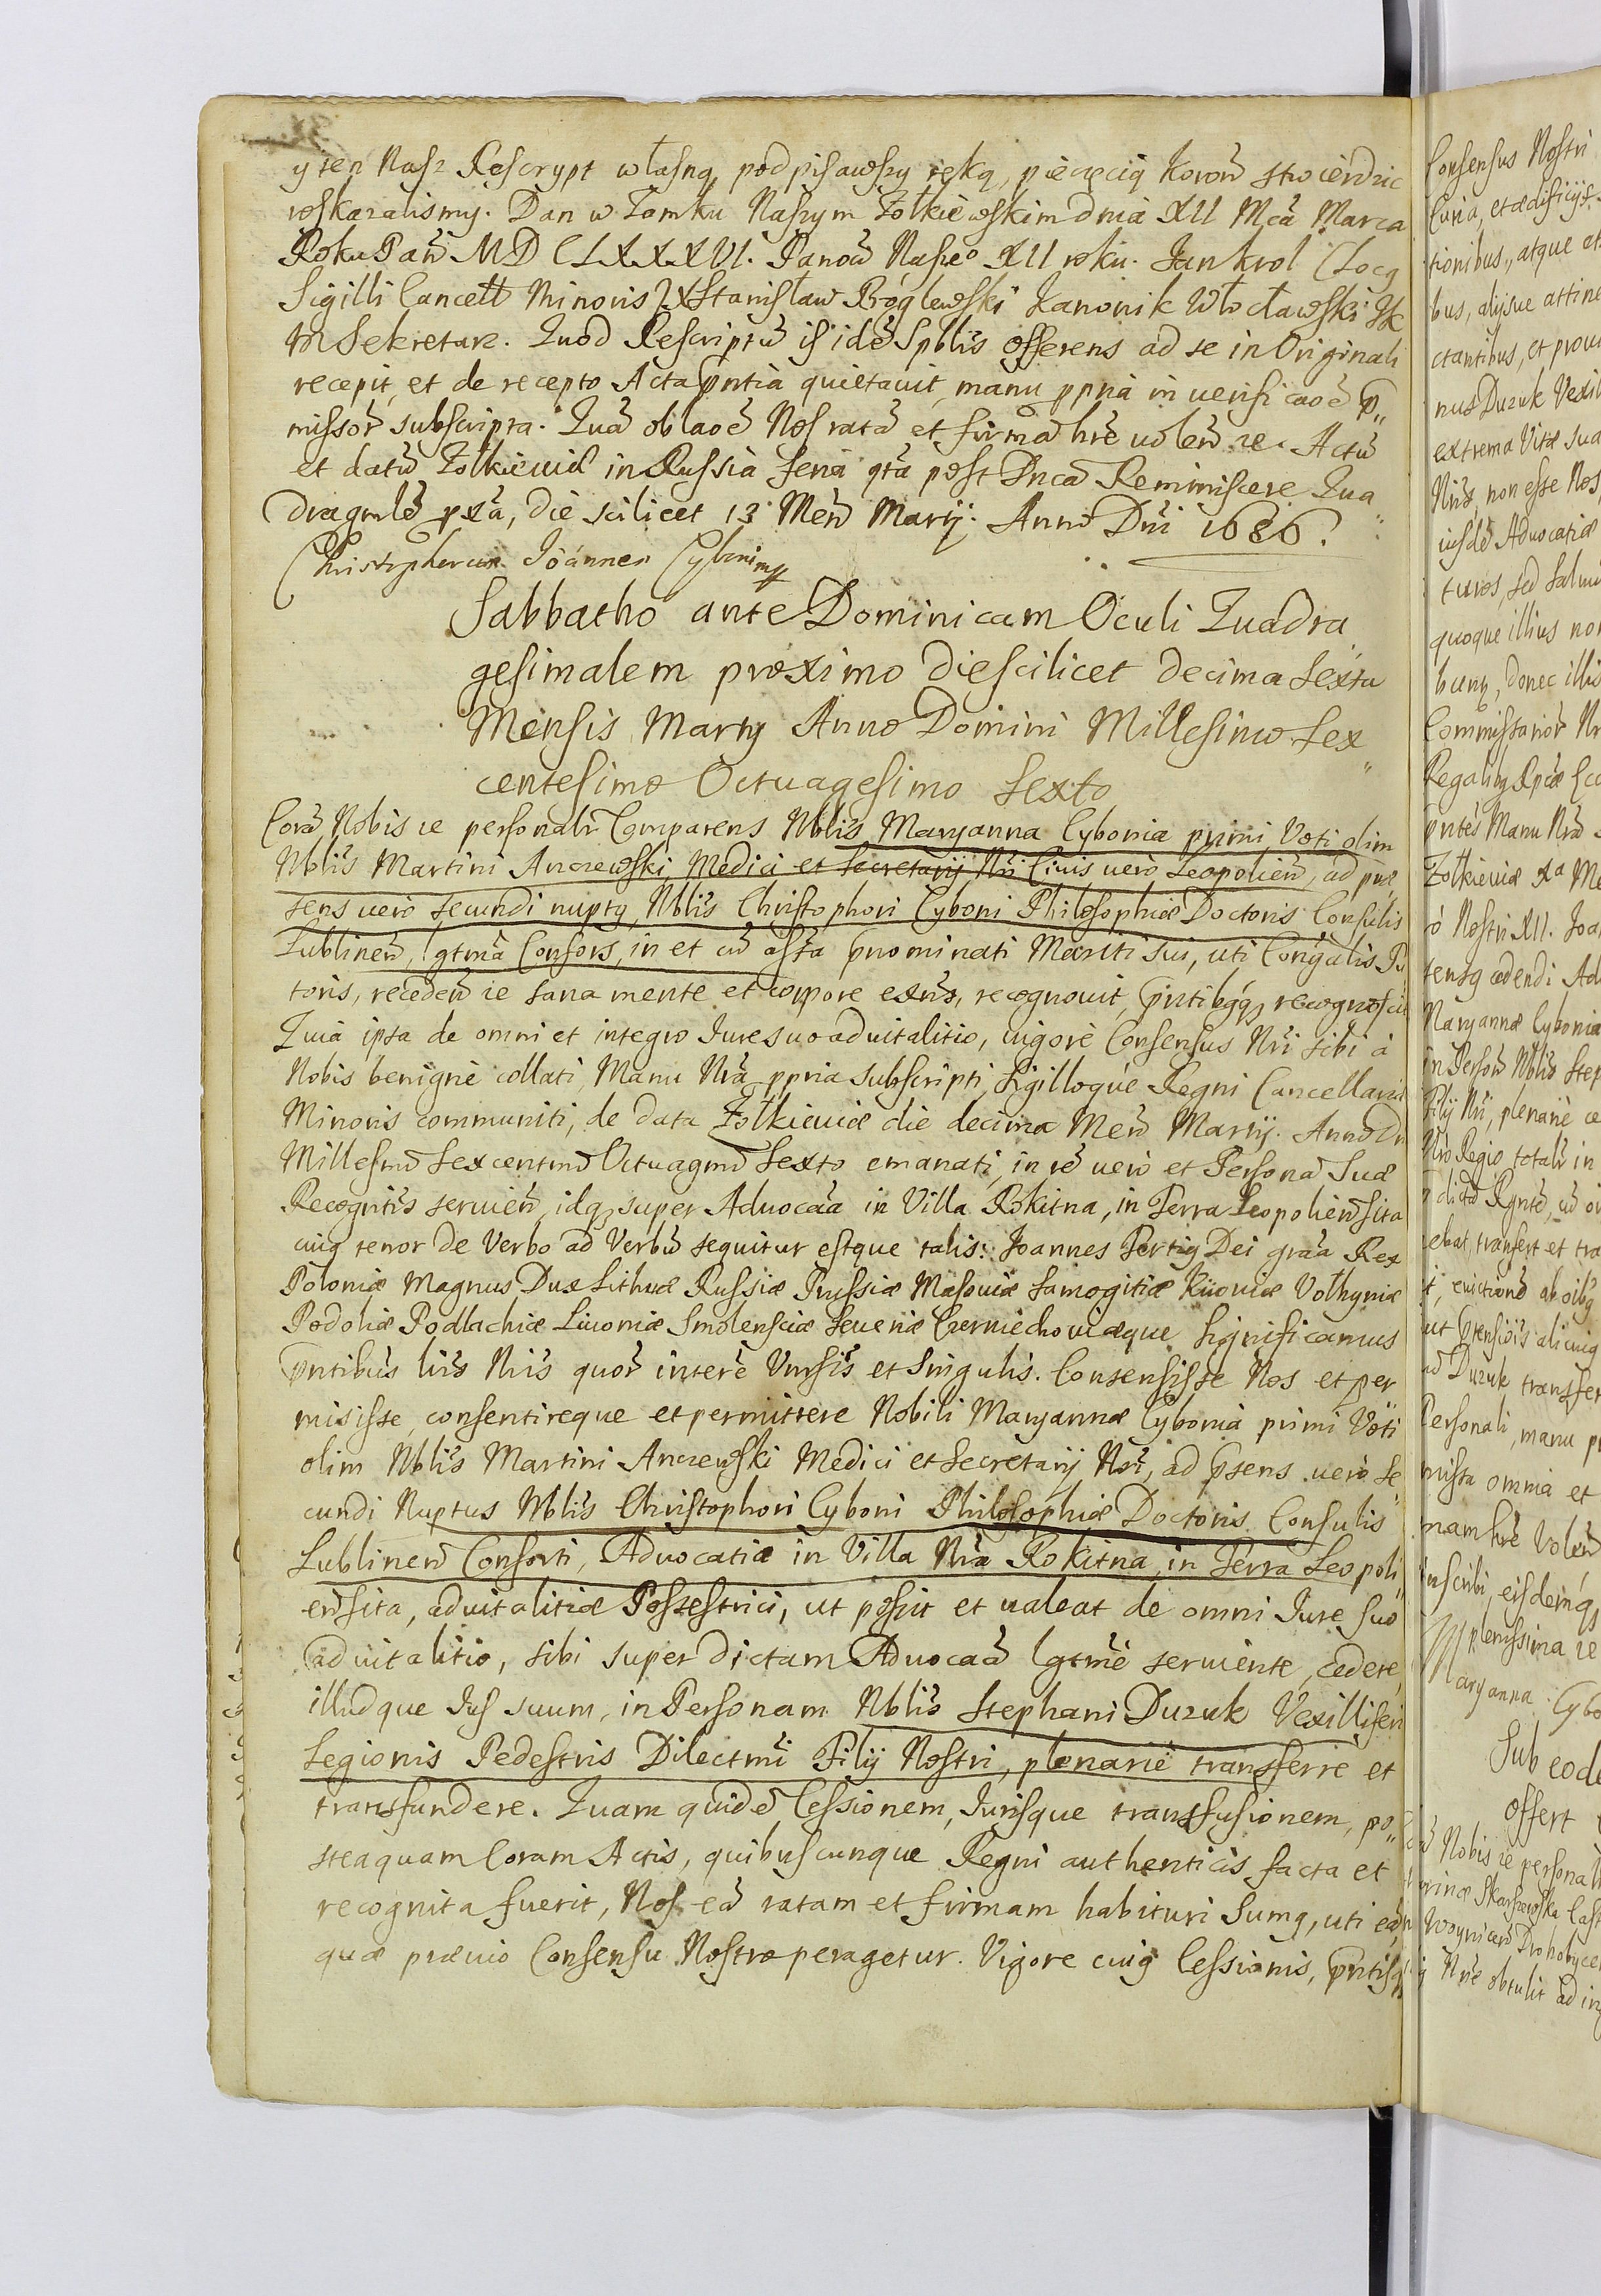 y ten Nasz Rescrypt własną podpisawszy ręką, pieczęcią Koron̄ stwierdzic
roskazalismy. Dan w Zamku Naszym Zołkiewskim dnia XII Mcā Marca
Roku Pan̄ MDCLXXXVI. Panow̄ Naszeo XII roku. Jan Krol (Locg
Sigilli Cancell Minoris) X Stanisław Bróglewski Kanonik Włocławski JK
M Sekretarz. Quod Rescriptū is idē Spblis offerens ad se in Originali
recepit, et de recepto Acta pntia quietauit, manu ppria in uerificaoē p„
missor̄ subscripta. Quā oblaoē Nos ratā et firmā hrē uolen̄ ze. Actū
et datū Zolkieuiæ in Russia feria qrta post Dncā Reminiscere Qua
dragmlē pxā, die scilicet 13 Men̄ Martij. Anno Dni 1686.
Christopherus Joannes Cyboni mp
Sabbatho ante Dominicam Oculi Quadra
gesimalem proximo die scilicet decima sexta
Mensis Martij Anno Domini Millesimo Sex„
centesimo Octuagesimo Sexto
Corā Nobis ze personalr Comparens Nblis Maryanna Cybonia primi Voti olim
Nblis Martini Anczewski Medici et Secretarij Nri Ciuis uero Leopolien̄, ad præ
sens uero secundi nuptq Nblis Christophori Cyboni Philosophiæ Doctoris Consulis
Lublinen̄, lgtmā Consors, in et cū assta pnominati Mariti sui, uti Congalis Tu
toris, receden̄ ze sana mente et corpore exns, recognouit, pntibqq recognoscit
Quia ipsa de omni et integro Iure suo aduitalitio, uigore Consensus Nri sibi à
Nobis benignè collati, Manu Nrā ppria subscripti, Sigilloque Regni Cancellariæ
Minoris communiti, de data Zolkieuiæ die decima Men̄ Martij. Anno Dn
Millesmo Sexcentmo Octuagmo Sexto emanati, in rē uero et Personā Suæ
Recogntis seruien̄, idq super Aduocaa in Villa Rokitna, in Terra Leopolien̄ sita
cuig tenor de Verbo ad Verbū sequitur estque talis: Joannes Tertig Dei graā Rex
Poloniæ Magnus Dux Lithuæ Russiæ Prussiæ Masouiæ Samogitiæ Kiiouiæ Volhyniæ
Podoliæ Podlachiæ Liuoniæ Smolensciæ Seueriæ Czerniechouiæque Significamus
pntibus liris Nris quor̄ interē Vnrsis et Singulis. Consensisse Nos et per
misisse, consentireque et permittere Nobili Maryannæ Cybonia primi Voti
olim Nblis Martini Anczewski Medici et Secretarij Nri, ad psens uero Se
cundi Nuptus Nblis Christophori Cyboni Philosophiæ Doctoris Consulis
Lublinen̄ Consorti, Aduocatiæ in Villa Nrā Rokitna, in Terra Leopoli
en̄ sita, aduitalitiæ Possestrici, ut possit et ualeat de omni Iure Suo
aduitalitio, sibi super dictam Aduocaā lgtmē seruiente, cedere,
illudque Jus suum, in Personam Nblis Stephani Duzuk Vexilliferi
Legionis Pedestris Dilectmi Filij Nostri, plenariè transferre et
transfundere. Quam quidē Cessionem, Iurisque transfusionem, po„
steaquam Coram Actis, quibuscunque Regni authenticis facta et
recognita fuerit, Nos eā ratam et firmam habituri Sumq, uti eā,
quæ præuio Consensu Nostro peragetur. Vigore cuig Cessionis, pntisq
Consensus Nostri
Curia, et ædificijs
tionibus, atque
bus, alijsue
ctantibus, et
nus Duzuk
extrema Vitæ sua
Nris, non esse Nos
iusdē Aduocatiæ
turos, sed
quoque illius
donec
Commissarior̄
Regalibq
pntēs Manu Nrā
Zolkieuiæ
Nostri XII. Joa
cedendi
Maryannæ Cybonia
in Person̄ Nblis
Filij Nri, plenariè
Nro Regio totalr in
transfert et
euictione ab oibq
Duzuk
Personali, manu
missa omnia et
hrē Volen̄
inscribi, eisdemq
plenissima ze
Maryanna Cybo
Sub eode
Offert
Nobis ze personal
Skarszewska
Drohobyce
obtulit ad